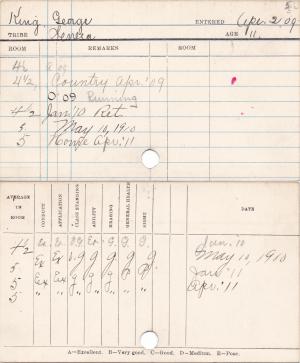 King, George ENTERED Apr. 2, 09
TRIBE Seneca AGE 11
ROOM REMARKS ROOM REMARKS
4½ Country Apr. '09
O' 09 Running
4½ Jan '10 Ret.
5 May 10, 1910
5 Home Apr. '11
AVERAGE IN ROOM CONDUCT APPLICATION CLASS STANDING ABILITY HEARING GENERAL HEALTH HOME DATE
4½ Ex. Ex. v.g. Ex. g. g. g. Jan. 10
5 Ex Ex v.g g g g g May 10, 1910
5 Ex Ex g g g Jan '11
5 " " " " " " " Apr. '11
A—Excellent. B—Very good. C—Good. D—Medium. E—Poor.